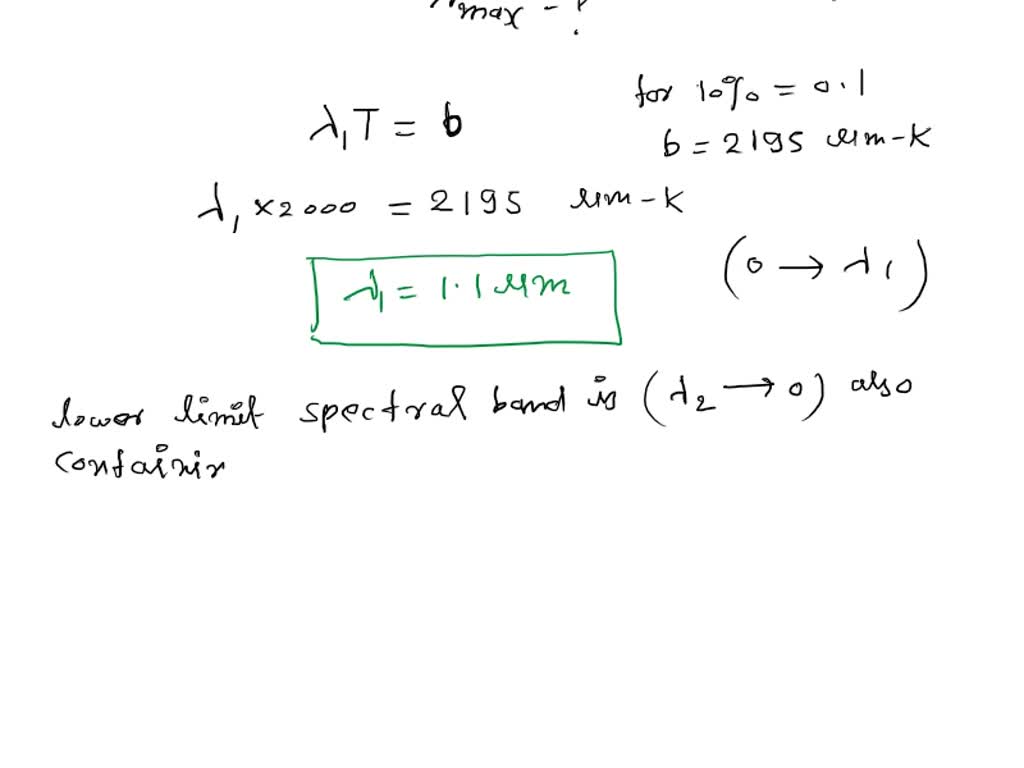 λmax = ?
for 10% = 0.1
λ₁T = b
b = 2195 μm-K
λ₁ × 2000 = 2195 μm-K
(0 → λ₁)
λ₁ = 1.1 μm
lower limit spectral band is (λ₂ → 0) also
containin